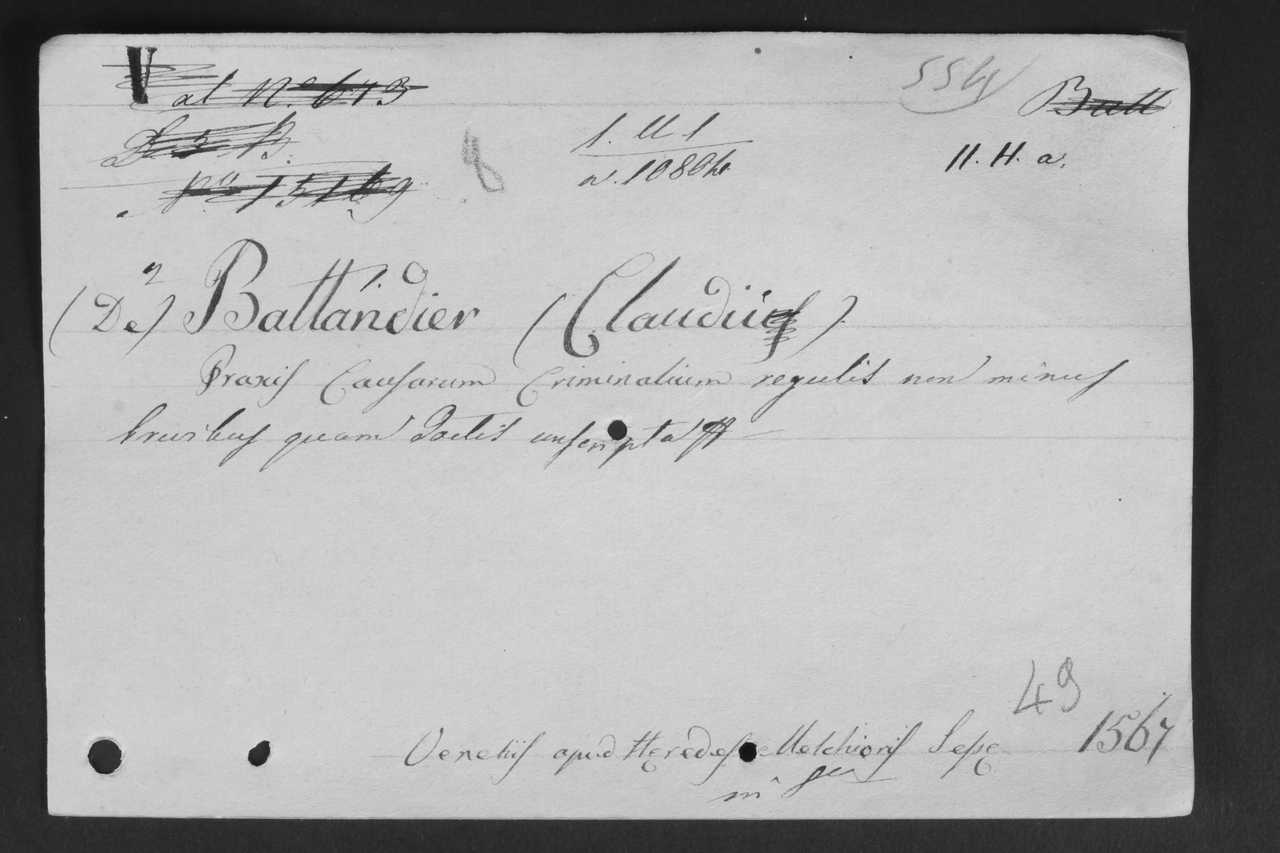 V
at N.º 673
554
Batt
D 3 B.
g
1. U 1
a. 1080
11. H. a.
Nº 15169
(De) Battandier (Claudius).
Praxis Causarum Criminalium regulis non minus
brevibus quam doctis conscripta
49
Venetiis apud Heredes Melchioris Sesse 1567
in 8º